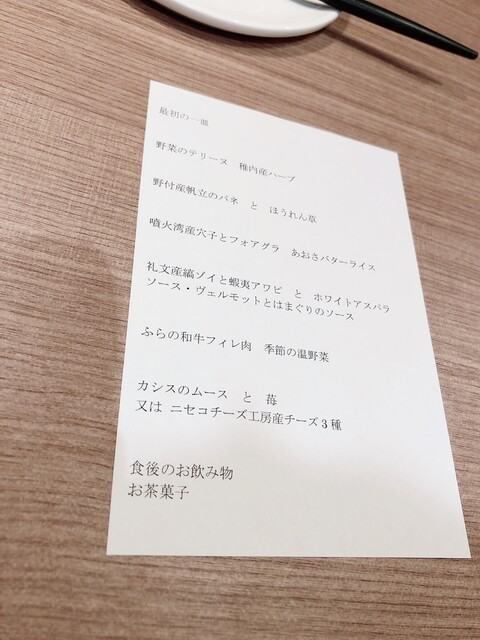 最初の一皿
野菜のテリーヌ 稚内産ハーブ
野付産帆立のパネ と ほうれん草
噴火湾産穴子とフォアグラ あおさバターライス
礼文産縞ゾイと蝦夷アワビ と ホワイトアスパラ
ソース・ヴェルモットとはまぐりのソース
ふらの和牛フィレ肉 季節の温野菜
カシスのムース と 苺
又は ニセコチーズ工房産チーズ3種
食後のお飲み物
お茶菓子